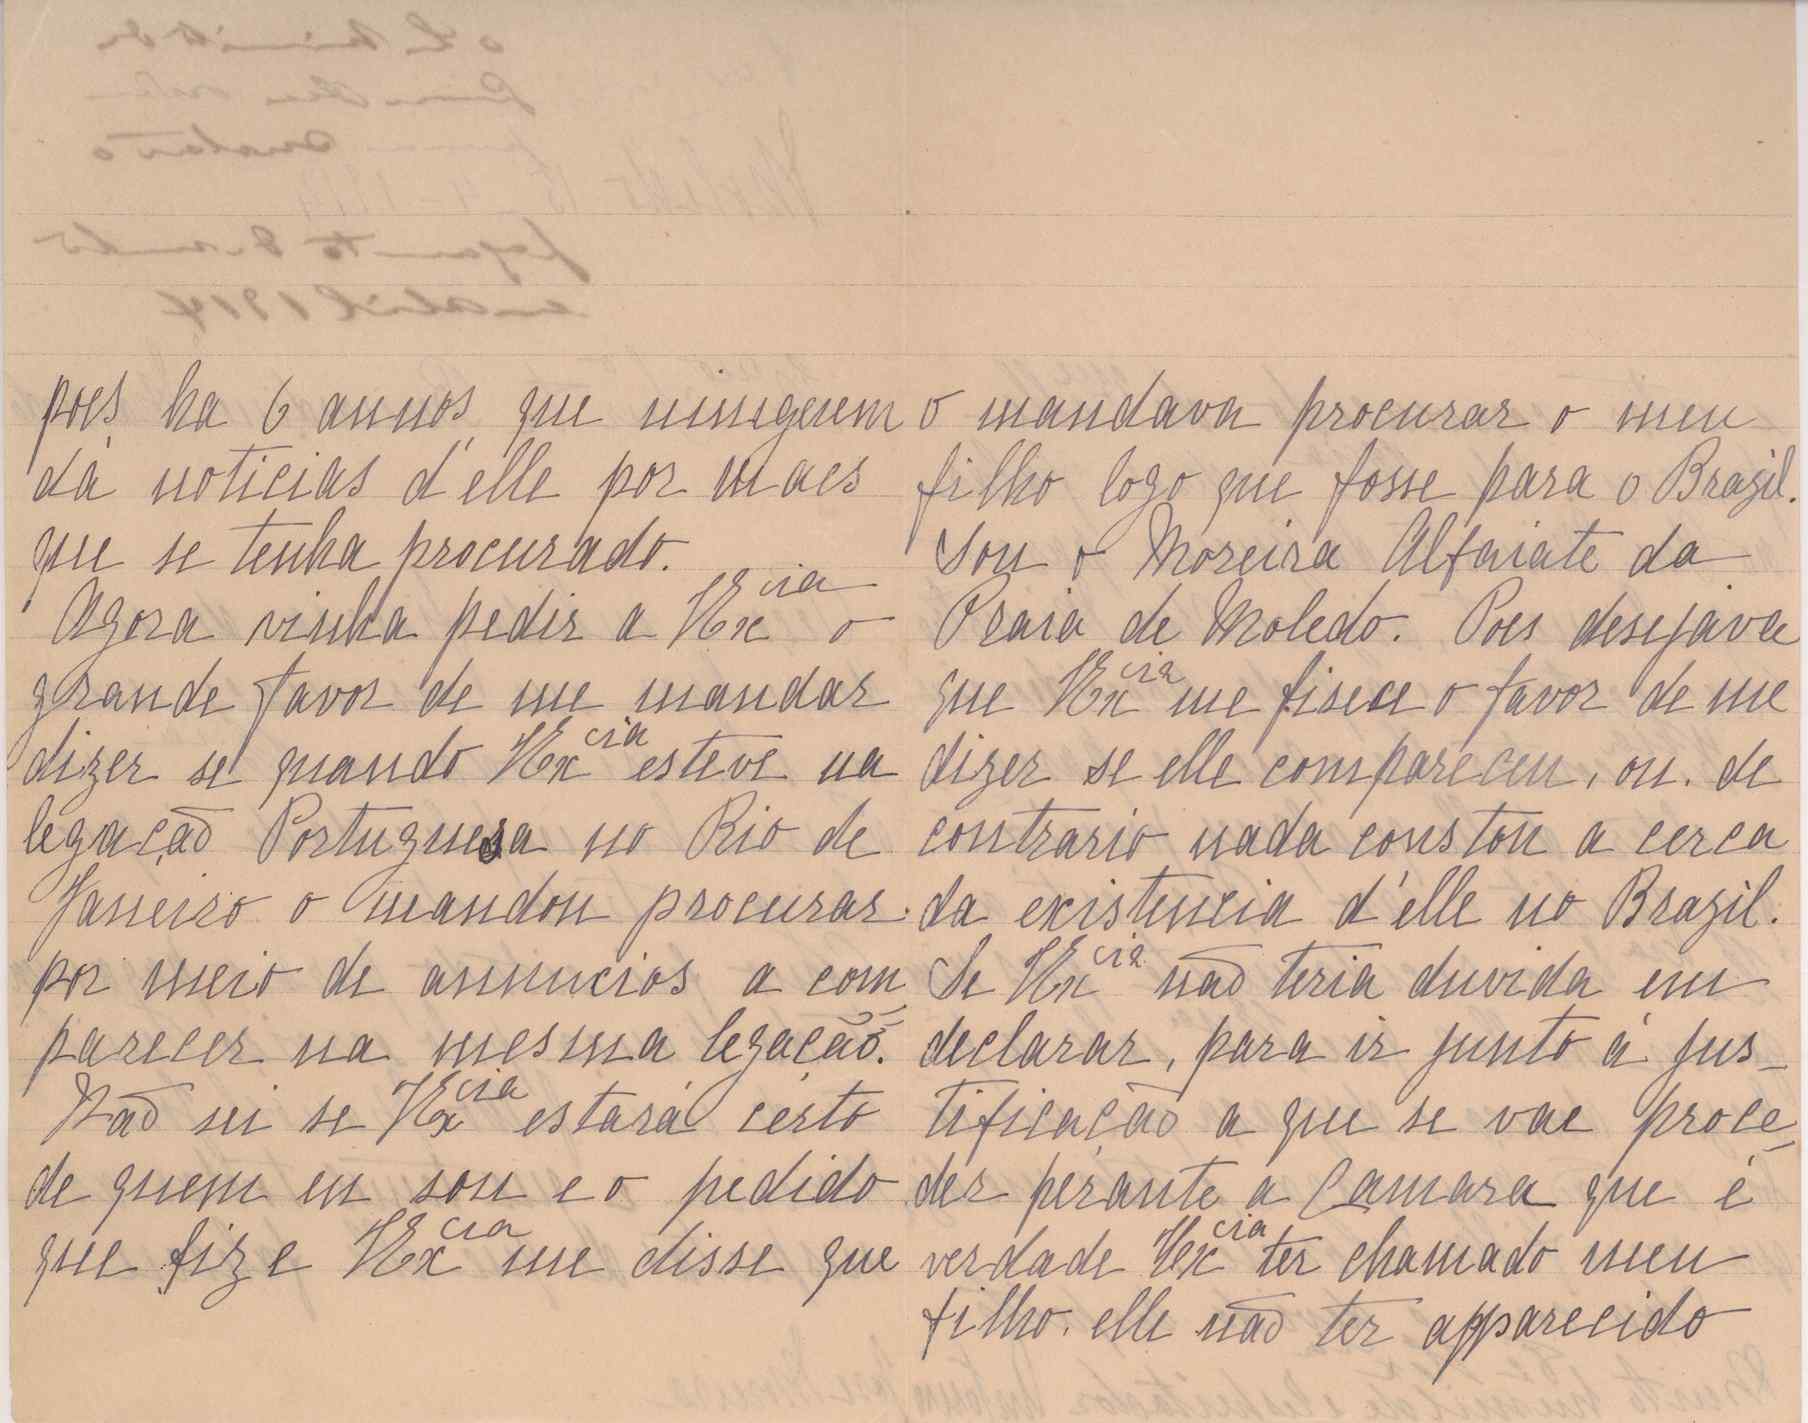 poes ha 6 annos que ninguem
dá noticias d'elle por maes
que se tenha procurado.
Agora vinha pedir a VEx cia o
grande favor de me mandar
dizer se quando VEx cia esteve na
legação Portuguesa no Rio de
Janeiro o mandou procurar
por meio de annuncios a com=
parecer na mesma legacão.
Não sei se VEx cia estará cérto
de quem eu sou e o pedido
que fiz e VEx cia me disse que
o mandava procurar o meu
filho logo que fosse para o Brazil.
Sou o Moreira Alfaiate da
Praia de Moledo. Poes desejava
que VEx cia me fisece o favor de me
dizer se elle compareceu, ou. de
contrario nada constou a cerca
da existencia d'elle no Brazil.
Se VEx cia não teria duvida em
declarar, para ir junto á jus-
tificacão a que se vae proce-
der pérante a Camara que é
verdade VEx cia ter chamado meu
filho. elle não ter apparecido